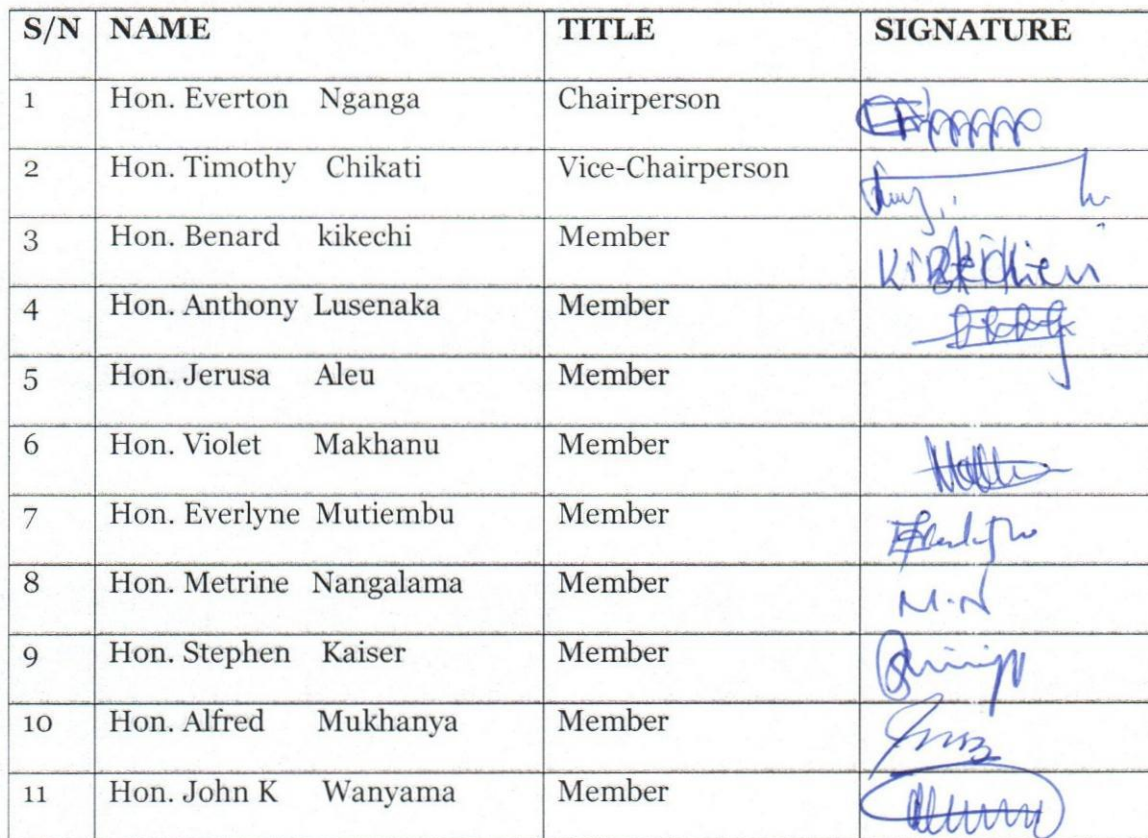 S/N NAME TITLE SIGNATURE
1 Hon. Everton Nganga Chairperson
2 Hon. Timothy Chikati Vice-Chairperson
3 Hon. Benard kikechi Member
4 Hon. Anthony Lusenaka Member
5 Hon. Jerusa Aleu Member
6 Hon. Violet Makhanu Member
7 Hon. Everlyne Mutiembu Member
8 Hon. Metrine Nangalama Member M.N
9 Hon. Stephen Kaiser Member
10 Hon. Alfred Mukhanya Member
11 Hon. John K Wanyama Member